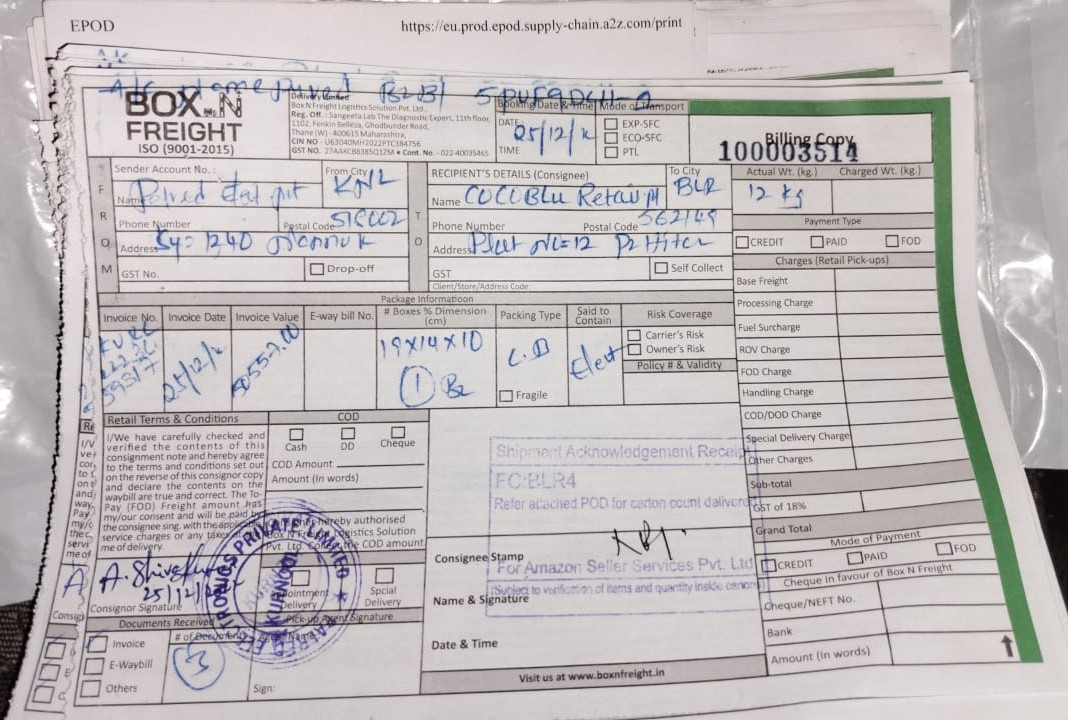 EPOD
https://eu.prod.epod.supply-chain.a2z.com/print
BOX N
FREIGHT
ISO (9001-2015)
Delivery Limited
Box N Freight Logistics Solution Pvt. Ltd.,
Reg. Off. : Sangeeta Lab The Diagnostic Expert, 11th floor,
1102, Fenkin Belleza, Ghodbunder Road,
Thane (W) - 400615 Maharashtra,
CIN NO - U63040MH2022PTC384756
GST NO. 27AAKCB8385Q1ZM • Cont. No - 022-40035465
Booking Date & Time
DATE
25/12/
TIME
Mode of Transport
EXP-SFC
ECO-SFC
PTL
Billing Copy
100003514
Sender Account No. :
From City
KNL
Name
Phone Number
Postal Code 518002
Address Sy= 1240
GST No.
Drop-off
F
R
O
M
RECIPIENT'S DETAILS (Consignee)
To City
BLR
Name COCOBlu Retail
Phone Number
Postal Code 562149
Address
GST
Self Collect
Client/Store/Address Code
T
O
Actual Wt. (kg.)
Charged Wt. (kg.)
12 kg
Payment Type
CREDIT
PAID
FOD
Charges (Retail Pick-ups)
Base Freight
Processing Charge
Fuel Surcharge
ROV Charge
FOD Charge
Handling Charge
COD/DOD Charge
Special Delivery Charge
Other Charges
Sub-total
GST of 18%
Grand Total
Package Informatioon
Invoice No.
Invoice Date
25/12/
Invoice Value
E-way bill No.
# Boxes % Dimension
(cm)
19x14x10
1
Packing Type
Fragile
Said to
Contain
Risk Coverage
Carrier's Risk
Owner's Risk
Policy # & Validity
Retail Terms & Conditions
I/We have carefully checked and
verified the contents of this
consignment note and hereby agree
to the terms and conditions set out
on the reverse of this consignor copy
and declare the contents on the
waybill are true and correct. The To-
Pay (FOD) Freight amount has
my/our consent and will be paid by
the consignee sing. with the applicable
service charges or any taxes
me of delivery.
COD
Cash
DD
Cheque
COD Amount
Amount (In words)
hereby authorised
Box N Freight Logistics Solution
Pvt. Ltd. Collect the COD amount
25/12/2025
Consignor Signature
Appointment
Delivery
Spcial
Delivery
Pick-up Agent Signature
Name
Sign:
Documents Received
# of Document
Invoice
E-Waybill
Others
3
KURNOOL
Shipment Acknowledgement Receipt
FC:BLR4
Refer attached POD for carton count dalivered
For Amazon Seller Services Pvt. Ltd
(Subject to verification of items and quantity inside cartons)
Consignee Stamp
Name & Signature
Date & Time
Mode of Payment
CREDIT
PAID
FOD
Cheque in favour of Box N Freight
Cheque/NEFT No.
Bank
Amount (In words)
Visit us at www.boxnfreight.in